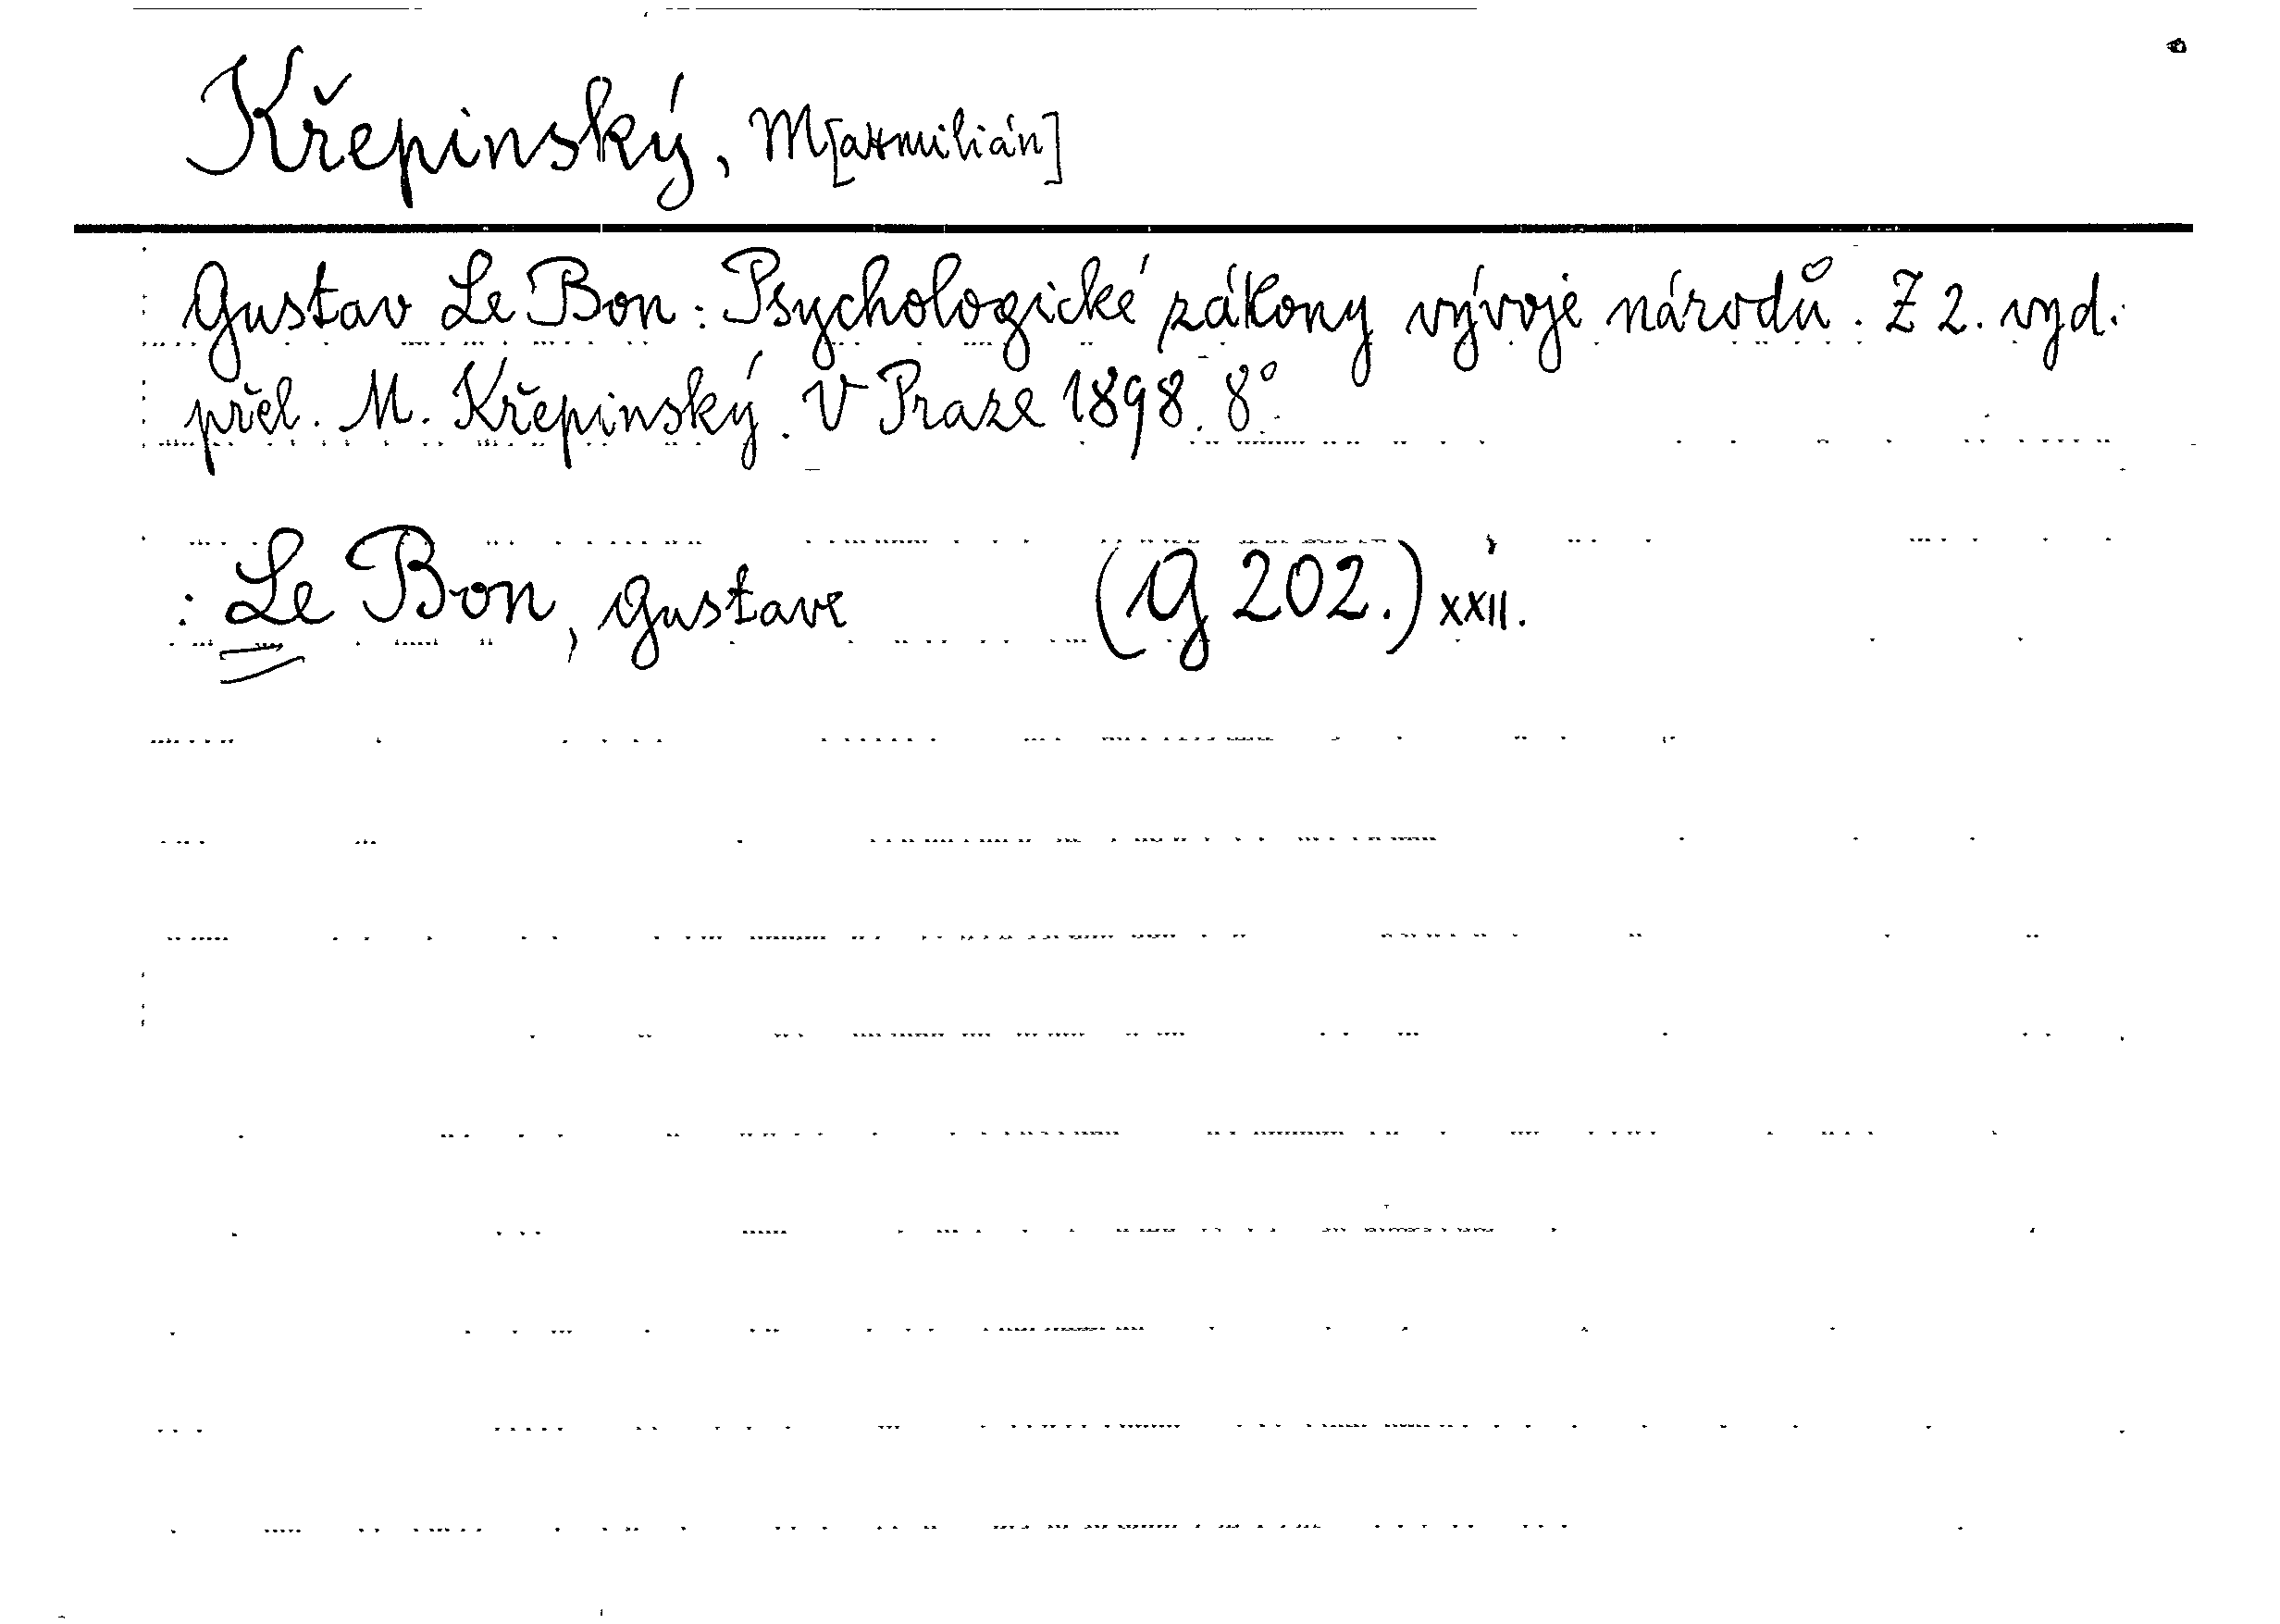 Křepinský, M[axmilián]
Gustav Le Bon: Psychologické zákony vývoje národů. Z 2. vyd.
přel. M. Křepinský. V Praze 1898. 8°.
: Le Bon, Gustave (G 202.) XXII.